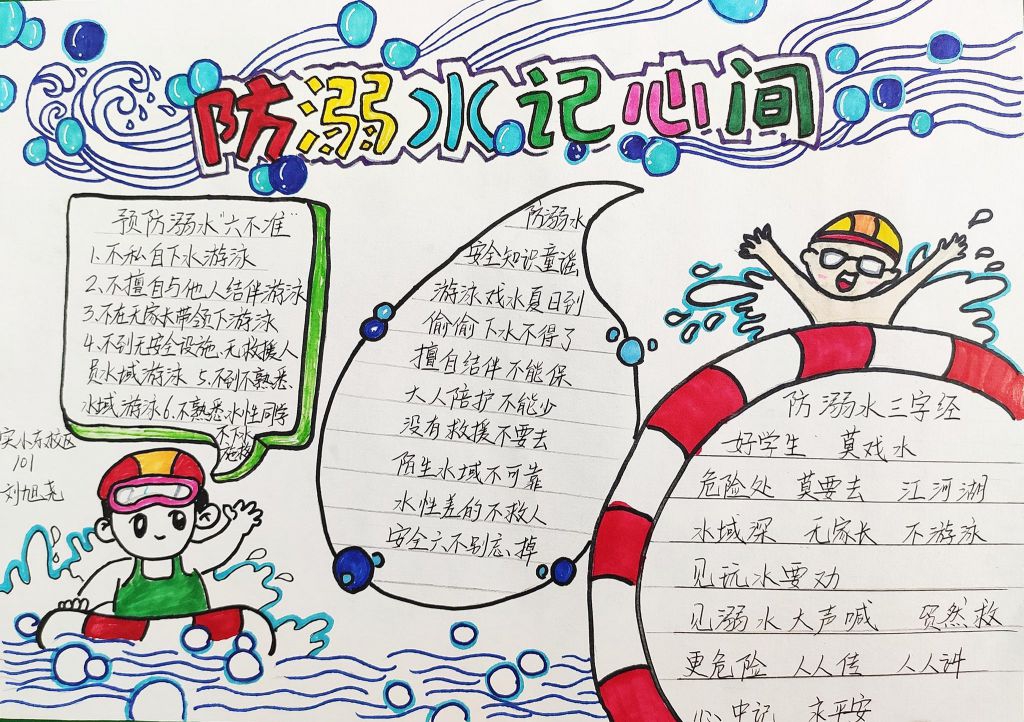 防溺水记心间
预防溺水"六不准"
1.不私自下水游泳
2.不擅自与他人结伴游泳
3.不在无家长带领下游泳
4.不到无安全设施、无救援人
员水域游泳 5.不到不熟悉、
水域游泳6.不熟悉水性同学
不下水
施救
实小东校区
101
刘旭尧
防溺水
安全知识童谣
游泳戏水夏日到
偷偷下水不得了
擅自结伴不能保
大人陪护不能少
没有救援不要去
陌生水域不可靠
水性差的不救人
安全六不别忘掉
防溺水三字经
好学生 莫戏水
危险处 莫要去 江河湖
水域深 无家长 不游泳
见玩水要劝
见溺水大声喊 贸然救
更危险 人人传 人人讲
心中记 求平安